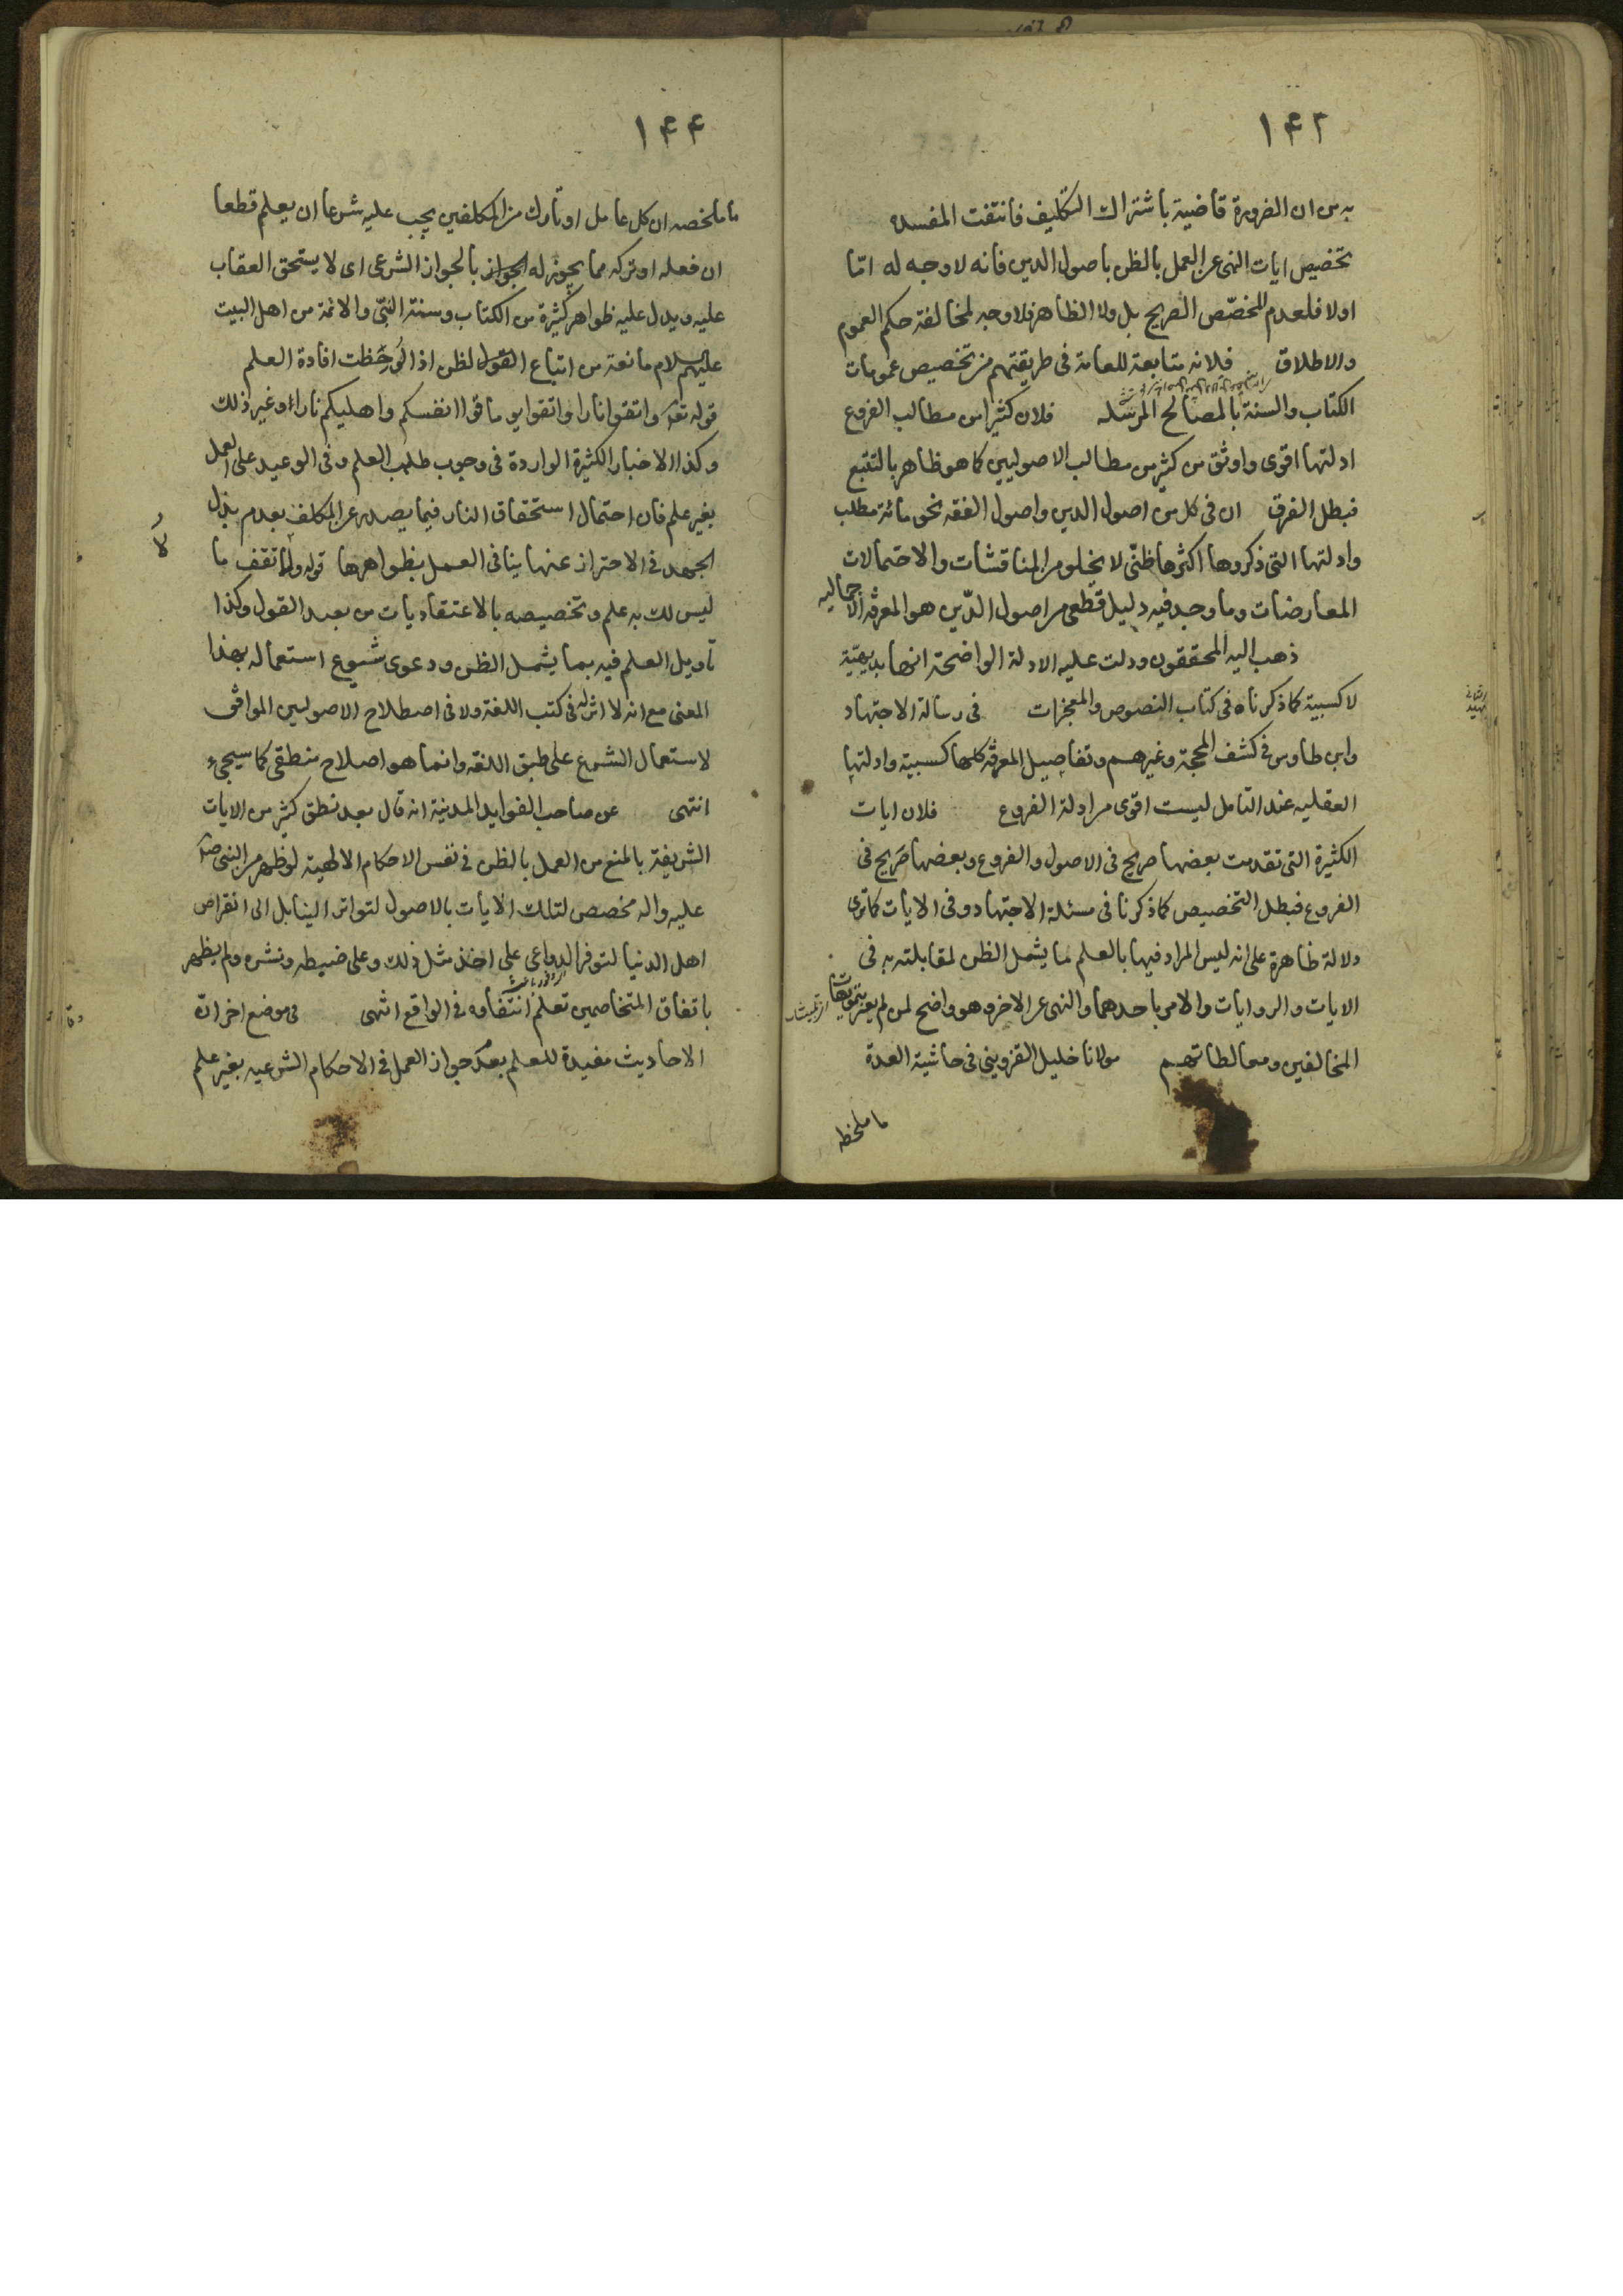 ١٤٢
به من ان الضرورة قاضية باشتراك التكليف فانتفت المفسدة
تخصيص ايات النهى عن العمل بالظن باصول الدين فانه لا وجه له امّا
اولا فلعدم المخصّص الصريح بل ولا الظاهر فلا وجه لمخالفة حكم العموم
والاطلاق فلانه متابعة للعامة فى طريقتهم من تخصيص عمومات
الكتاب والسنة بالمصالح المرسله فلان كثيرا من مطالب الفروع
ادلتها اقوى واوثق من كثير من مطالب الاصوليين كما هو ظاهر بالتتبع
فبطل الفرق ان فى كل من اصول الدين واصول الفقه نحو مائة مطلب
وادلتها التى ذكروها اكثرها ظنّى لا يخلو من المناقشات والاحتمالات
المعارضات وما وجد فيه دليل قطعى من اصول الدّين هو المعرفة الاجماليه
ذهب اليه المحققون ودلت عليه الادلة الواضحة انها بديهيّة
لا كسبية كما ذكرناه فى كتاب النصوص والمعجزات فى رسالة الاجتهاد
وابن طاوس فى كشف المحجة وغيرهم وتفاصيل المعرفة كلها كسبية وادلتها
العقليه عند التامل ليست اقوى من ادلة الفروع فلان ايات
الكثيرة التى تقدمت بعضها صريح فى الاصول والفروع وبعضها صريح فى
الفروع فبطل التخصيص كما ذكرنا فى مسئلة الاجتهاد وفى الايات كما ترى
دلالة ظاهرة على انه ليس المراد فيها بالعلم ما يشمل الظن لمقابلته به فى
الايات والروايات والامر باحدهما والنهى عن الاخر وهو واضح لمن لم يغتر بتمويهات
المخالفين ومغالطاتهم مولانا خليل القزوينى فى حاشية العدة
ما ملخصه
١٤٤
ما ملخصه ان كل عامل او تارك من المكلفين يجب عليه شرعا ان يعلم قطعا
ان فعله او تركه مما يجوز له الجواز بالجواز الشرعى اى لا يستحق العقاب
عليه ويدل عليه ظواهر كثيرة من الكتاب وسنة النبّى والائمة من اهل البيت
عليهم السلام مانعة من اتباع القول لظن اذا لوحظت افادة العلم
قوله تعا واتقوا نارا واتقوا يوما قوا انفسكم واهليكم نارا وغير ذلك
وكذا الاخبار الكثيرة الواردة فى وجوب طلب العلم وفى الوعيد على العمل
بغير علم فان احتمال استحقاق النار فيما يصدر عن المكلف بعدم بذل
الجهد فى الاحتراز عنها ينافى العمل بظواهرها قوله ولا تقف ما
ليس لك به علم وتخصيصه بالاعتقاديات من بعيد القول وكذا
تاويل العلم فيه بما يشمل الظن ودعوى شيوع استعماله بهذا
المعنى مع انه لا اثر له فى كتب اللغة ولا فى اصطلاح الاصوليين الموافق
لاستعمال الشرع على طبق اللغة وانما هو اصلاح منطقى كما سيجىء
انتهى عن صاحب الفوايد المدنية انه قال بعد نطق كثير من الايات
الشريفة بالمنع من العمل بالظن فى نفس الاحكام الالهية لو ظهر من النبى صلى
عليه واله مخصص لتلك الايات بالاصول لتواتر الينا بل الى انقراض
اهل الدنيا لتوفر الدواعى على اخذ مثل ذلك وعلى ضبطه ونشره ولم يظهر
باتفاق المتخاصمين تعلم انتفاوه فى الواقع انتهى فى موضع اخر انّ
الاحاديث مفيدة للعلم بعدم جواز العمل فى الاحكام الشرعيه بغير علم